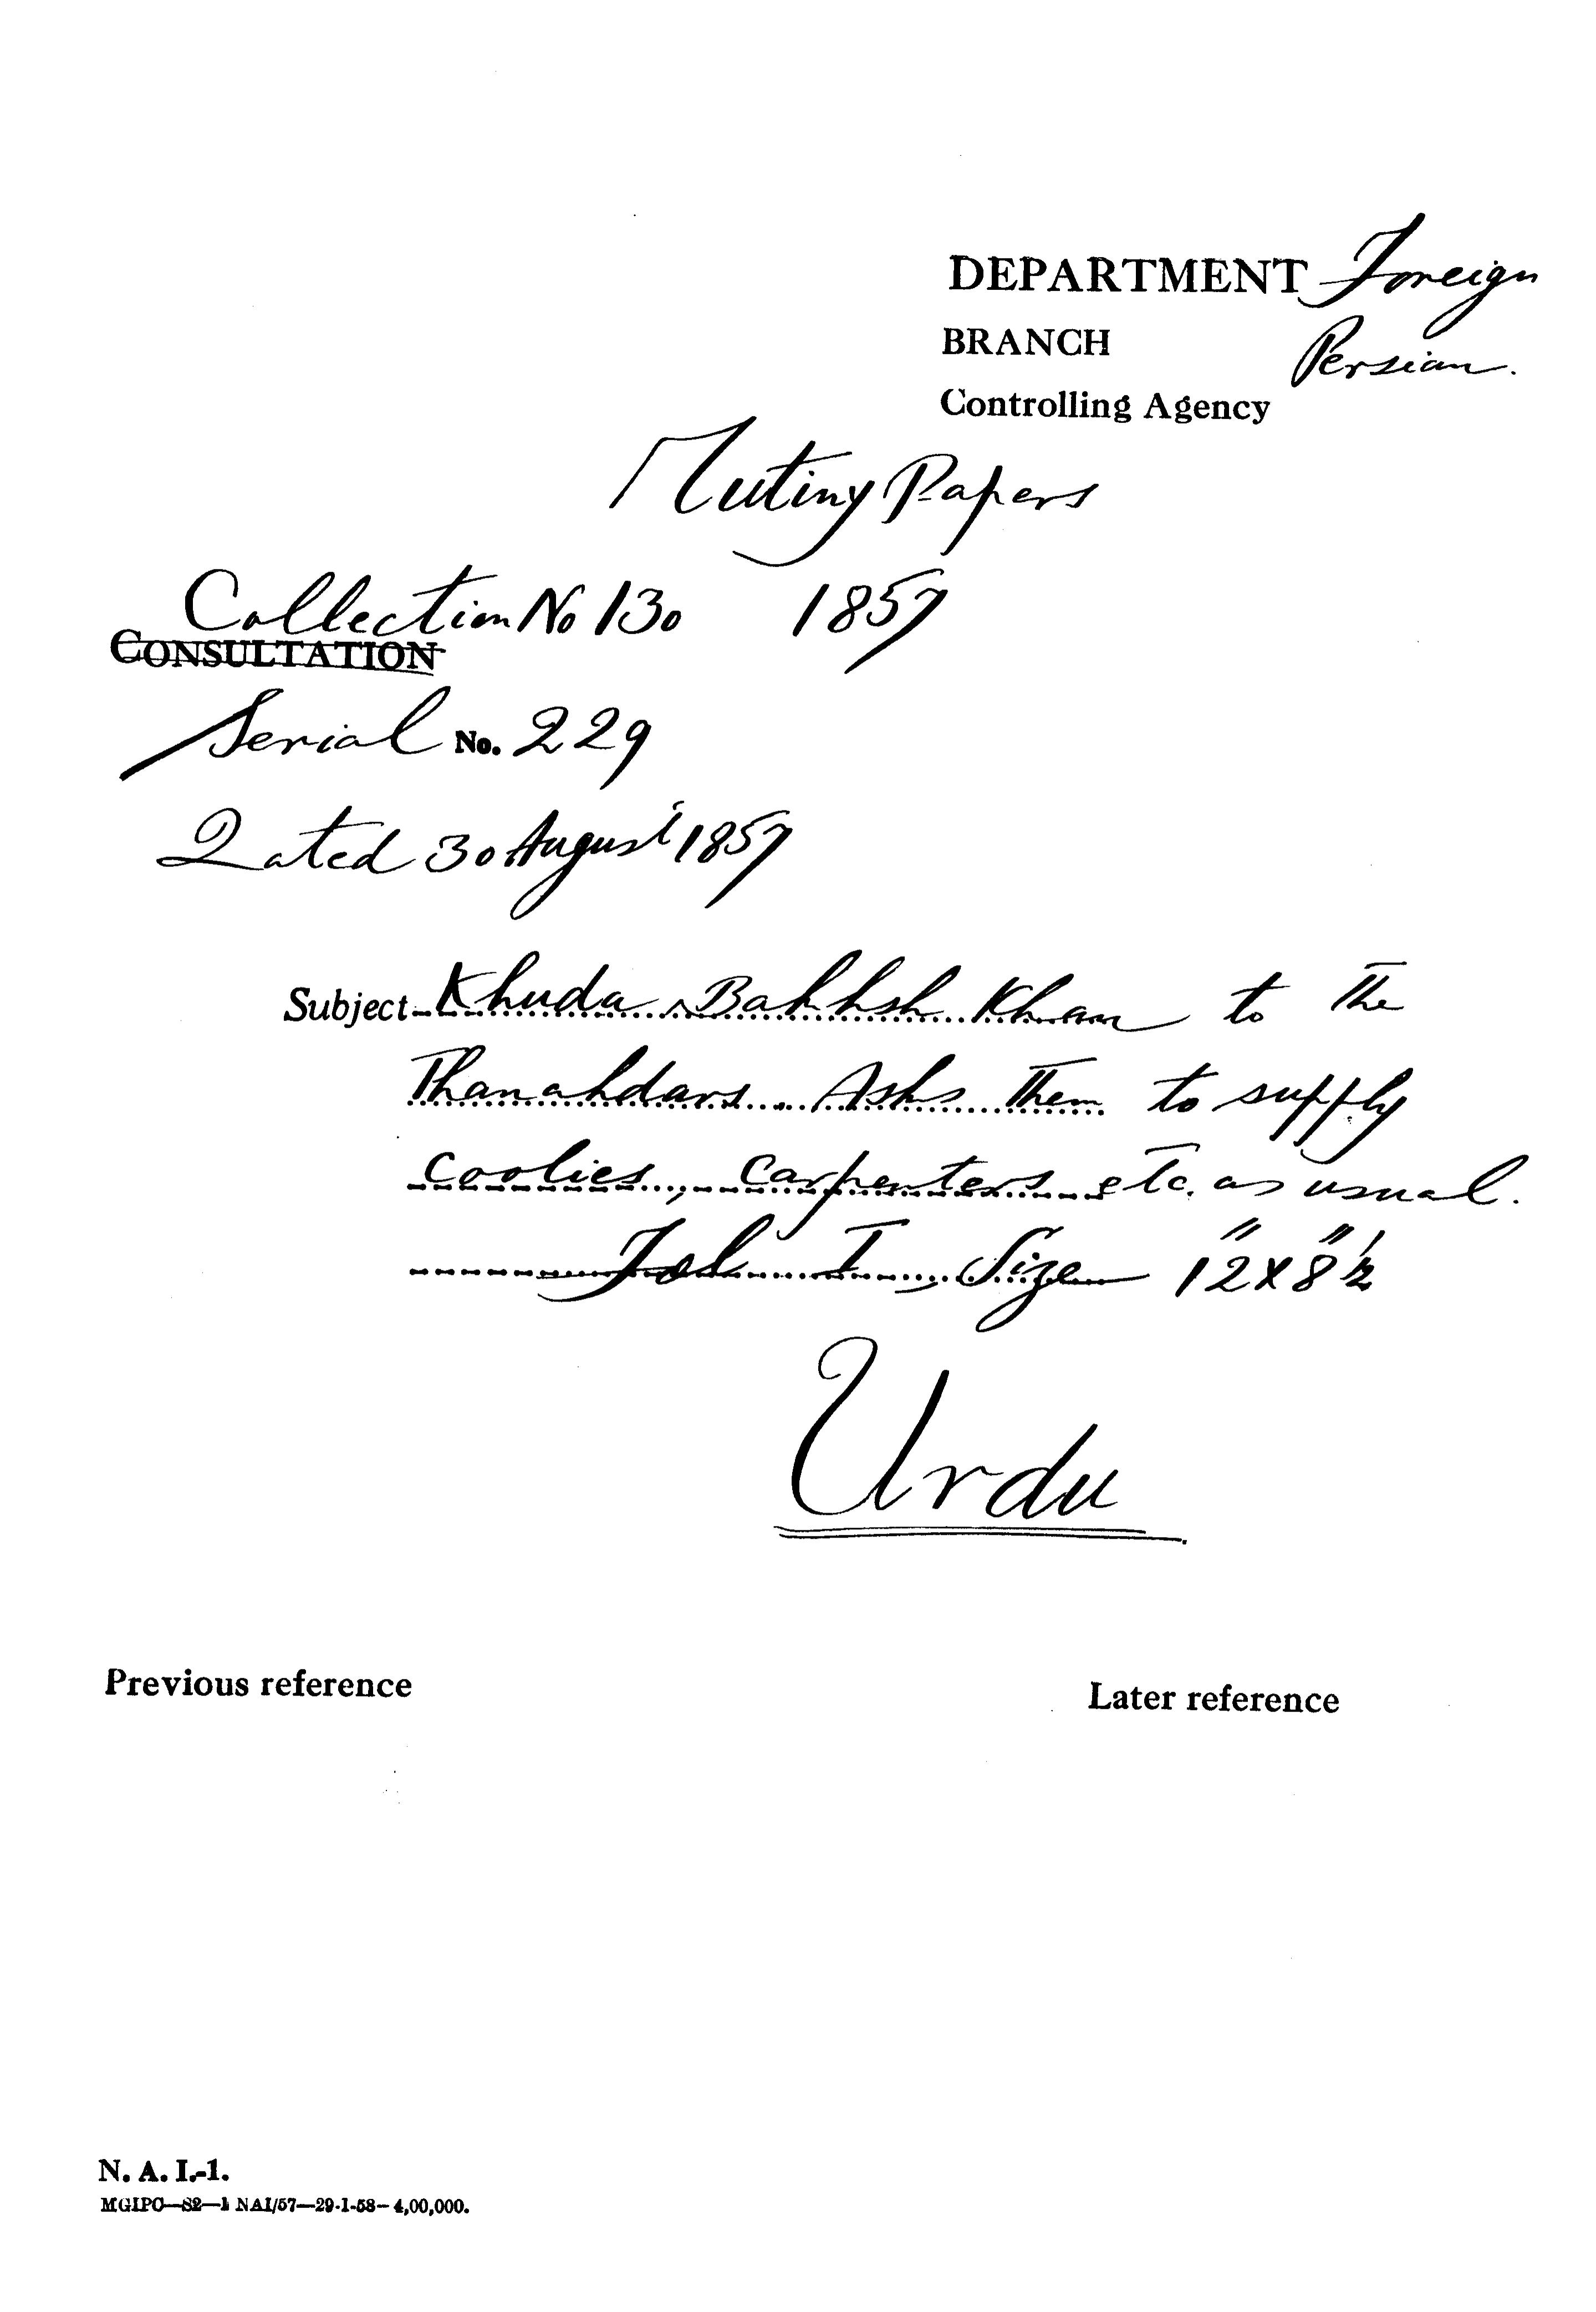 DEPARTMENT Foreign
BRANCH Persian.
Controlling Agency
Mutiny Papers
Collection No 130 1857
CONSULTATION
Serial No. 229
Dated 30 August 1857
Subject Khuda Bakhsh Khan to the
Thanahdars. Asks them to supply
coolies, carpenters etc. as usual.
Fol I, Size 12" x 8" ½
Urdu
Previous reference
Later reference
N. A. I.-1.
MGIPC—S2—1 NAI/57—29-1-58—4,00,000.